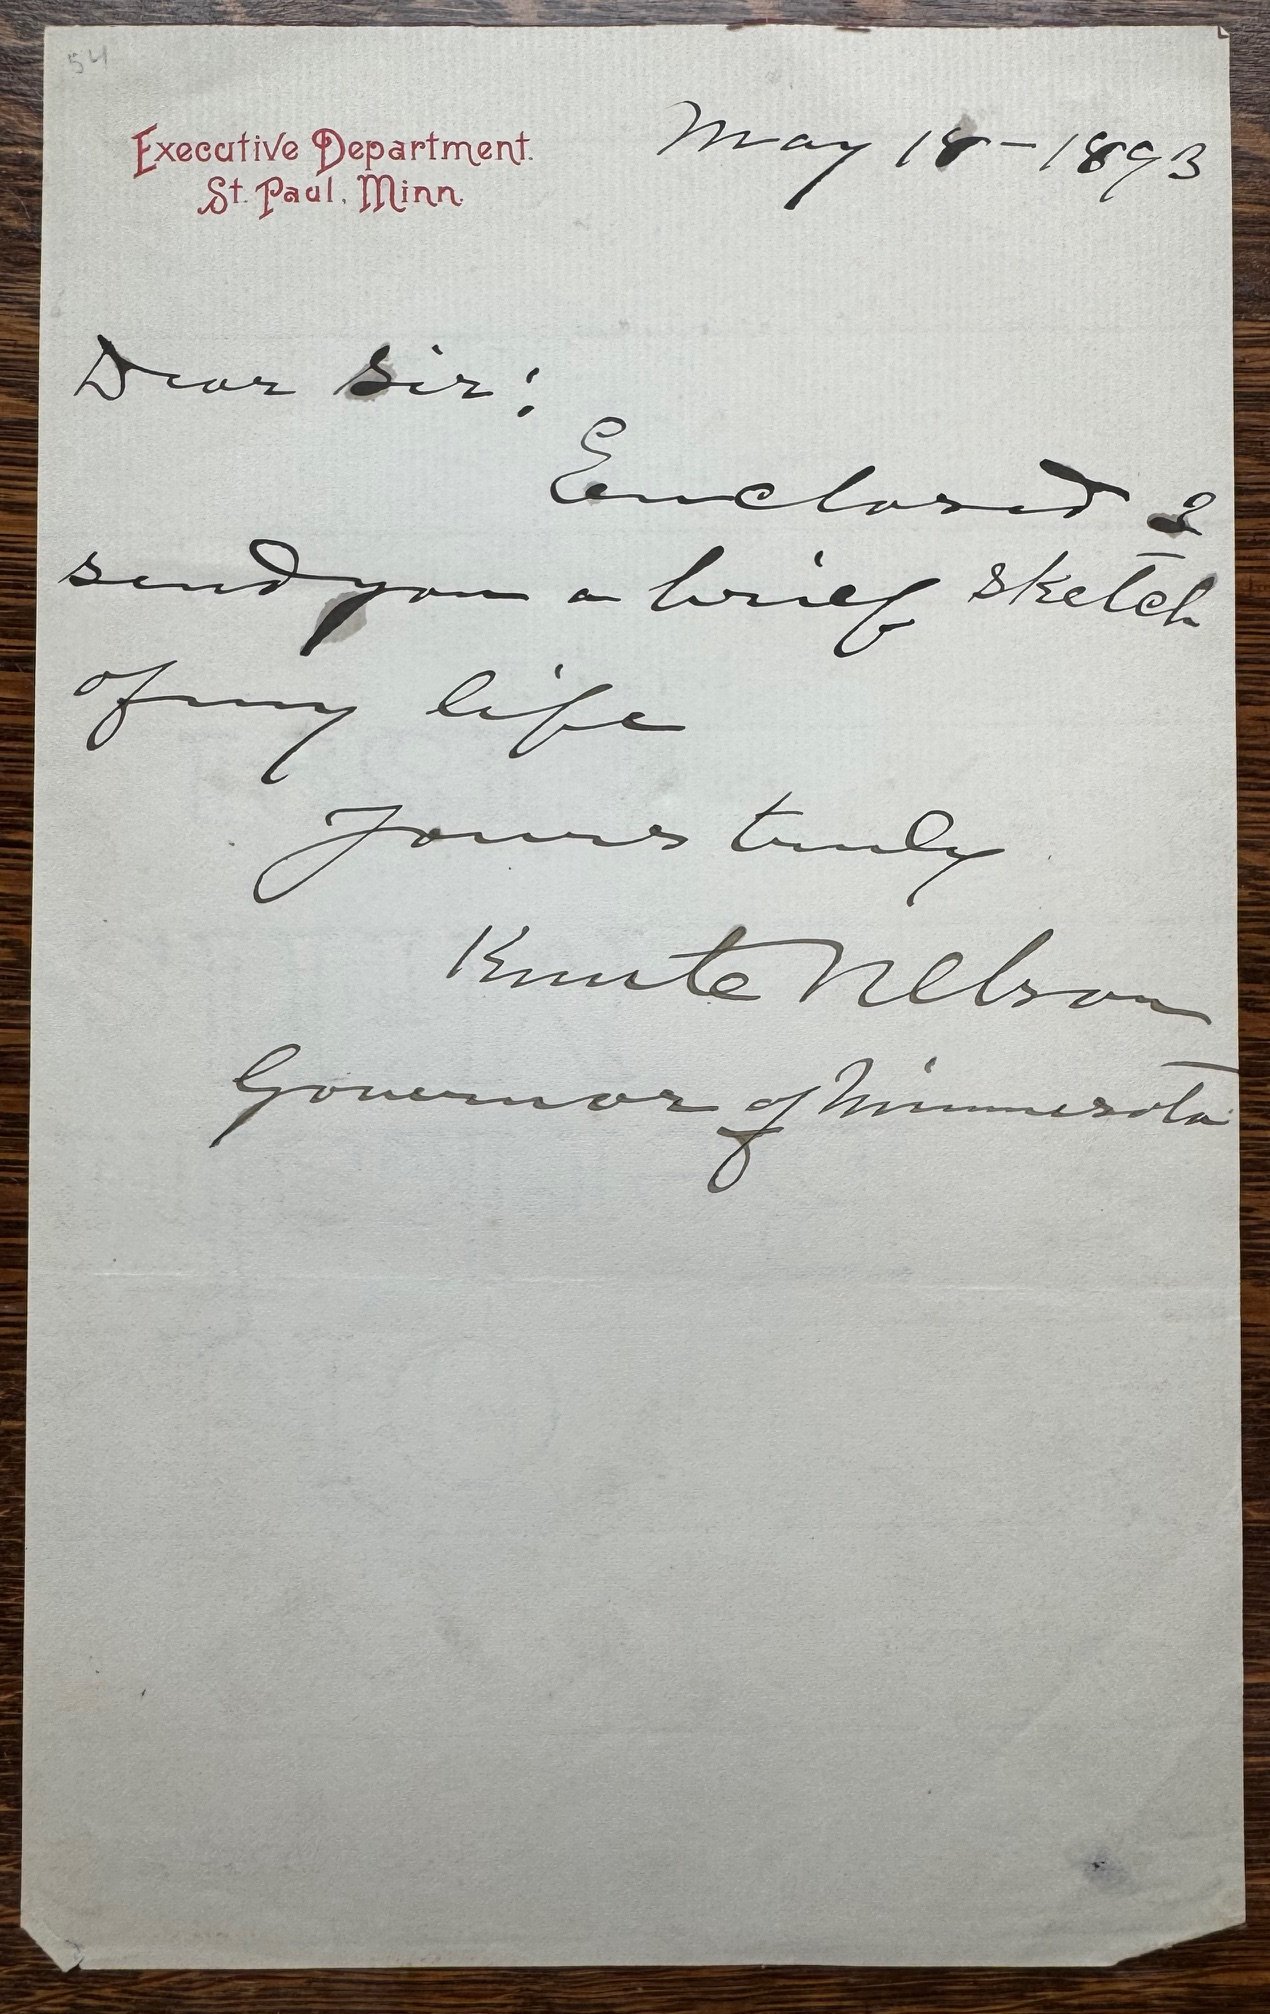 54
Executive Department.
St. Paul, Minn.
May 18 - 1893
Dear Sir:
Enclosed I
send you a brief sketch
of my life
Yours truly
Knute Nelson
Governor of Minnesota